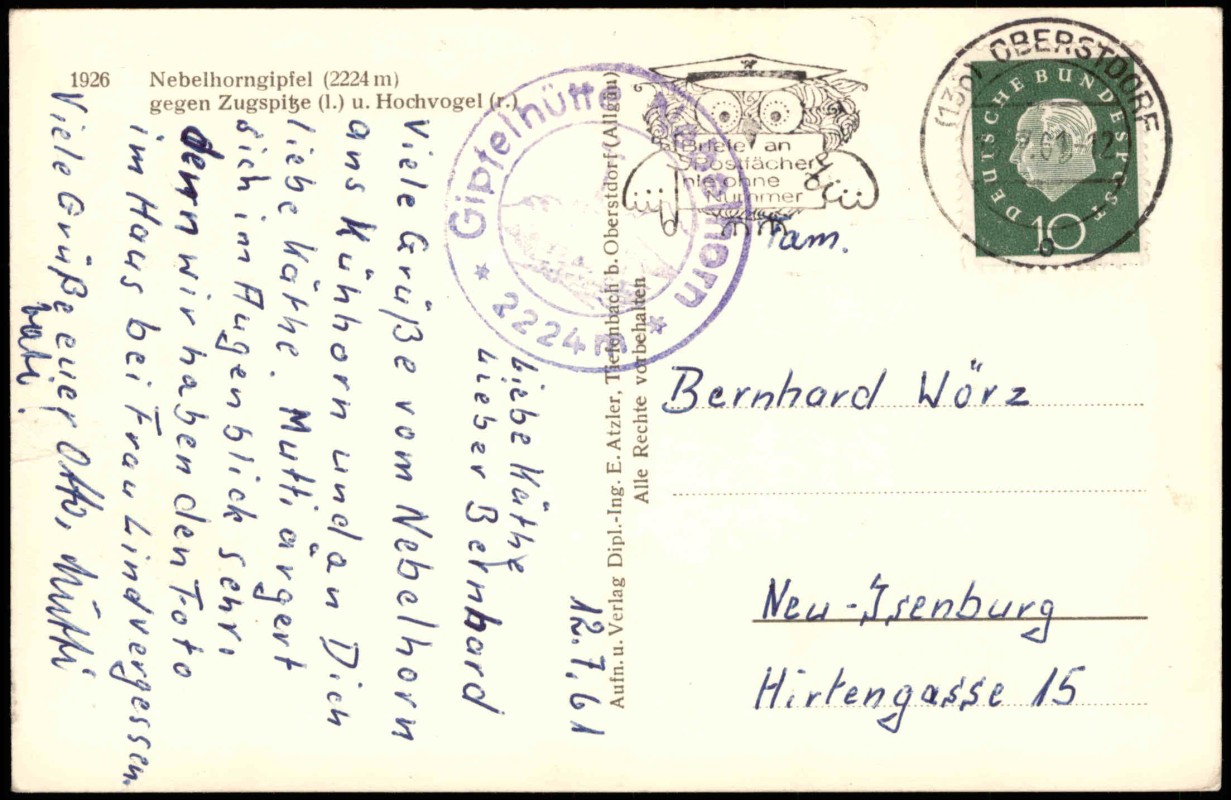 1926 Nebelhorngipfel (2224 m)
gegen Zugspitze (l.) u. Hochvogel (r.)
Gipfelhütte Nebelhorn
* 2224 m *
Briefe an
Postfächer
nie ohne
Nummer
OBERSTDORF
DEUTSCHE BUNDESPOST
10
Aufn. u. Verlag Dipl.-Ing. E. Atzler, Tiefenbach b. Oberstdorf (Allgäu)
Alle Rechte vorbehalten
12.7.61
Liebe Käthe
Lieber Bernhard
Viele Grüße vom Nebelhorn
ans Kühhorn und an Dich
liebe Käthe. Mutti ärgert
sich im Augenblick sehr,
denn wir haben den Toto
im Haus bei Frau Lind vergessen.
Viele Grüße euer Otto, Mutti
Vati
Fam.
Bernhard Wörz
Neu-Isenburg
Hirtengasse 15